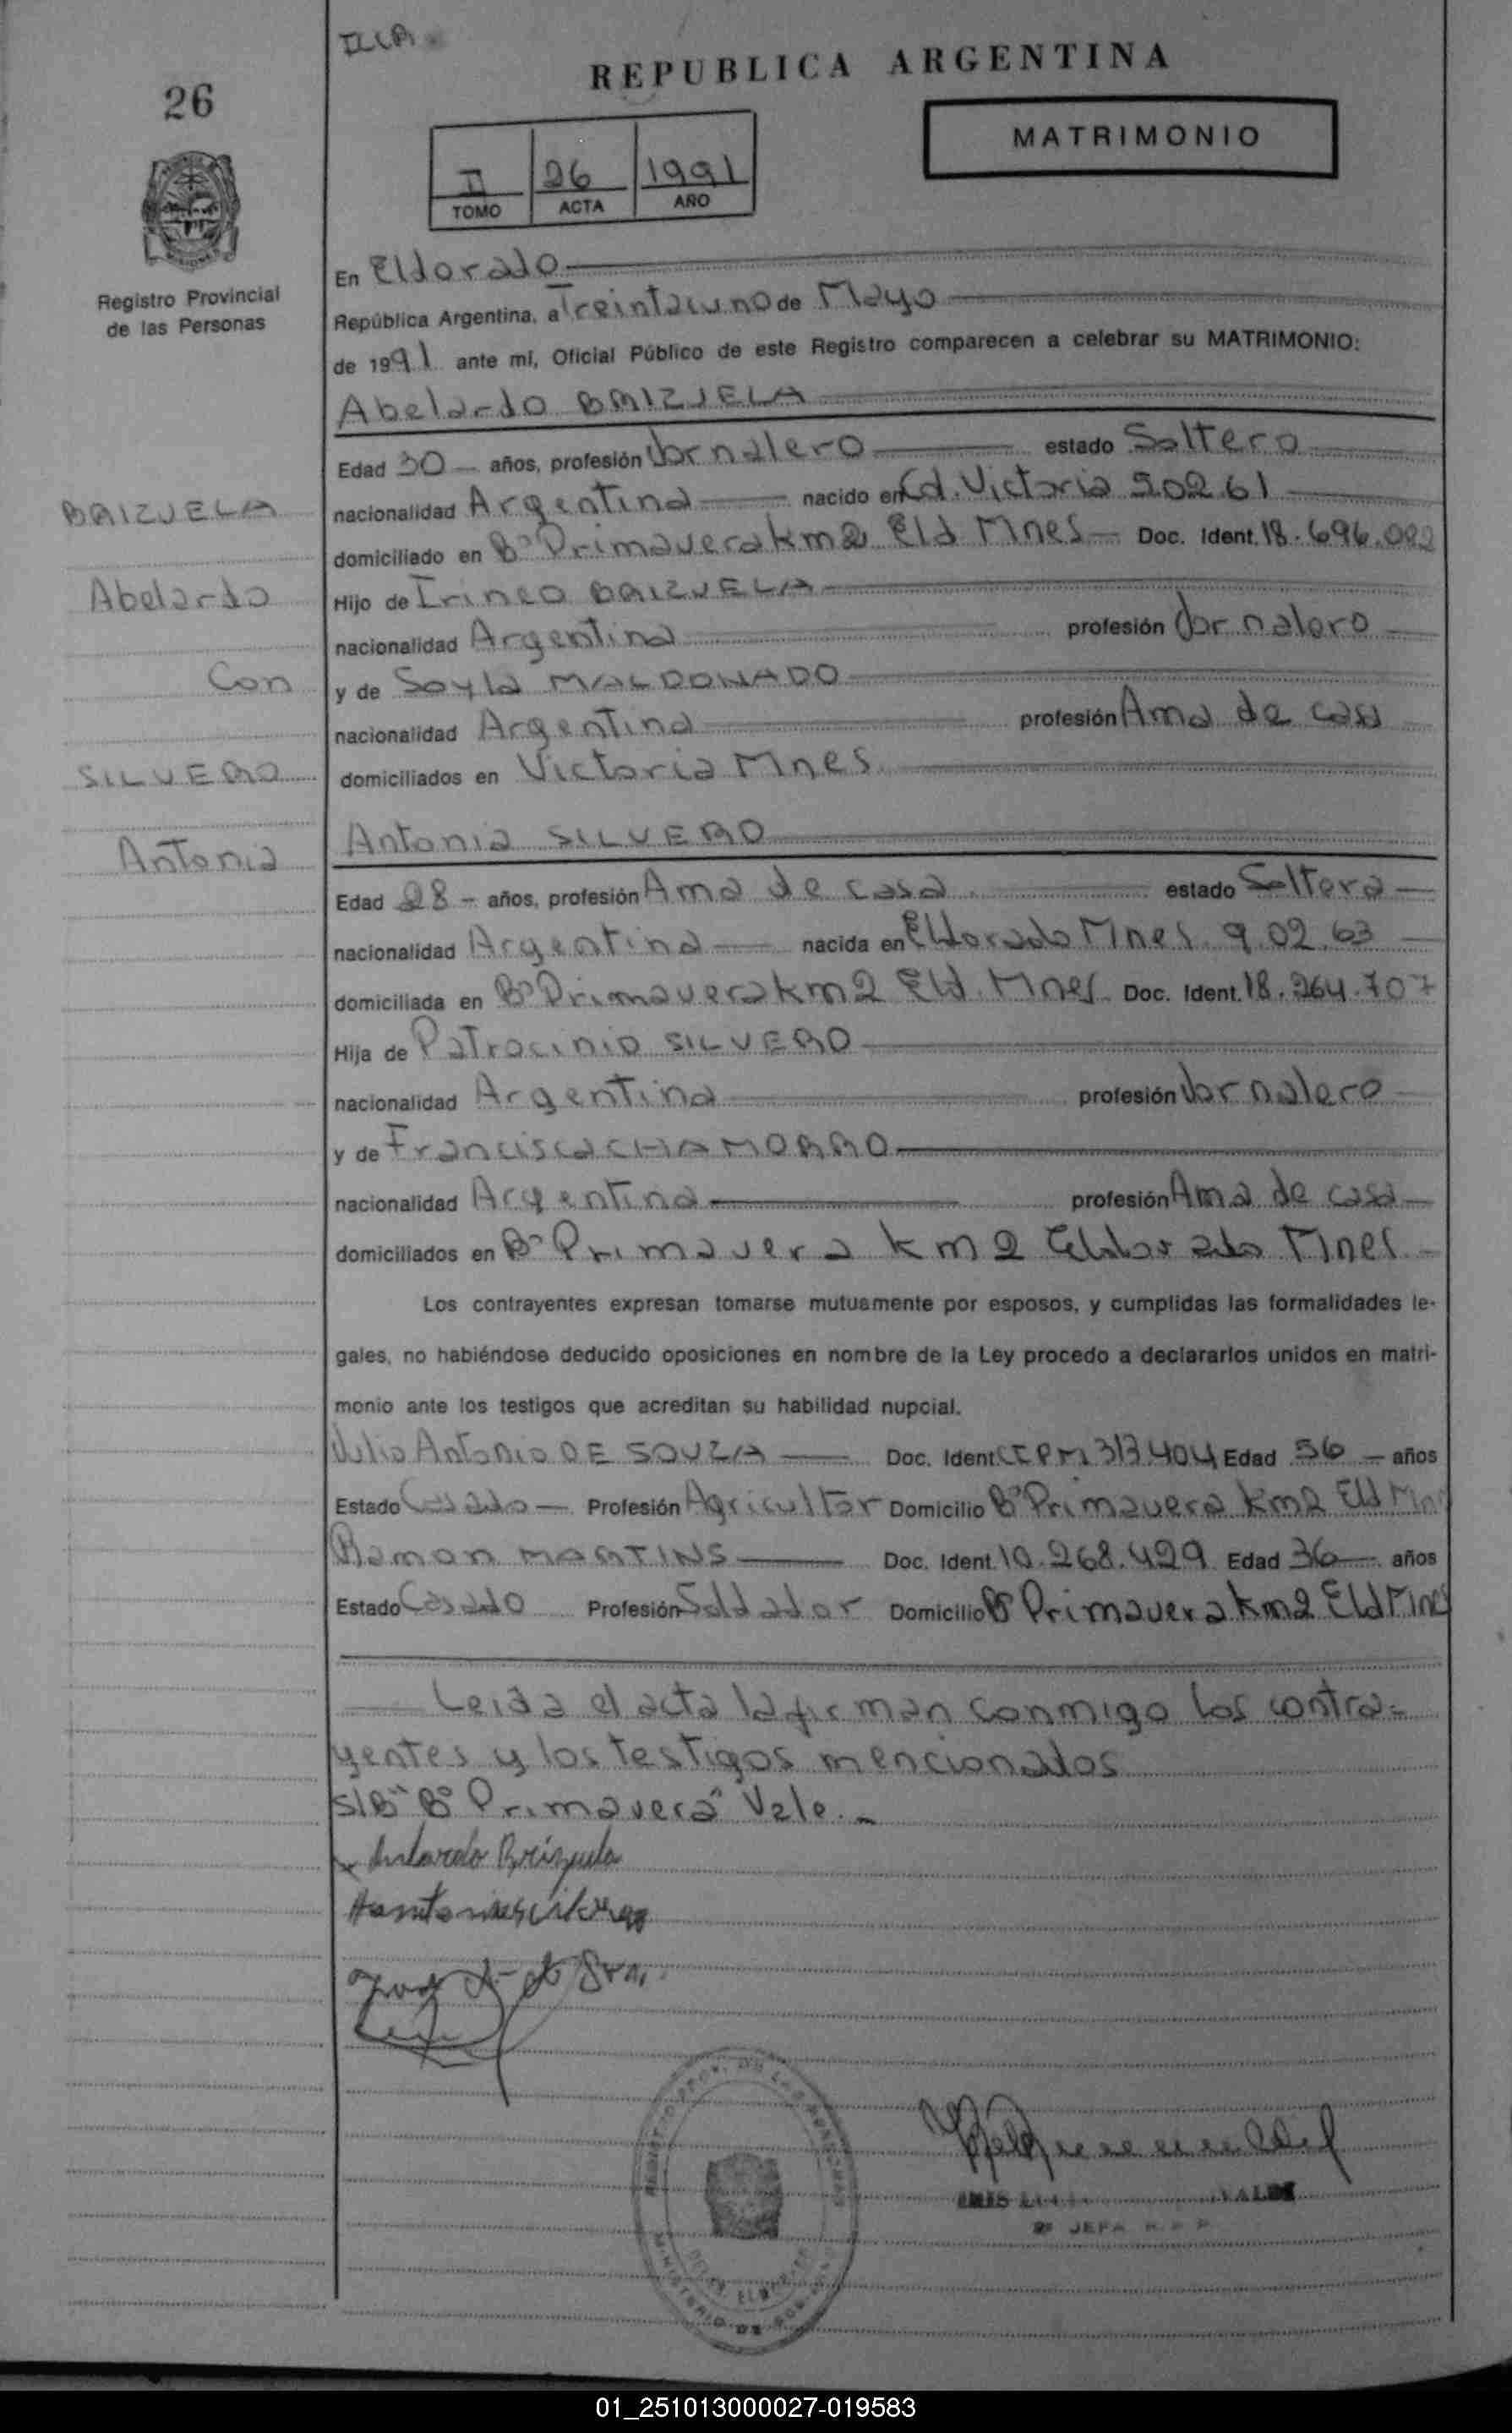 26
REPUBLICA ARGENTINA
MATRIMONIO
II 26 1991
TOMO ACTA AÑO
Registro Provincial
de las Personas
En Eldorado
República Argentina, a Treintaiuno de Mayo
de 1991 ante mí, Oficial Público de este Registro comparecen a celebrar su MATRIMONIO:
Abelardo BRIZUELA
Edad 30 años, profesión Jornalero estado Soltero
nacionalidad Argentina nacido en Cd. Victoria 20261
domiciliado en B° Primavera km2 Eld Mnes Doc. Ident. 18.696.092
Hijo de Irineo BRIZUELA
nacionalidad Argentina profesión Jornalero
y de Soyla MALDONADO
nacionalidad Argentina profesión Ama de casa
domiciliados en Victoria Mnes
BRIZUELA
Abelardo
Con
SILVERO
Antonia
Antonia SILVERO
Edad 28 años, profesión Ama de casa estado Soltera
nacionalidad Argentina nacida en Eldorado Mnes 9.02.63
domiciliada en B° Primavera km2 Eld. Mnes Doc. Ident. 18.264.707
Hija de Patrocinio SILVERO
nacionalidad Argentina profesión Jornalero
y de Francisca CHAMORRO
nacionalidad Argentina profesión Ama de casa
domiciliados en B° Primavera km2 Eldorado Mnes
Los contrayentes expresan tomarse mutuamente por esposos, y cumplidas las formalidades le-
gales, no habiéndose deducido oposiciones en nombre de la Ley procedo a declararlos unidos en matri-
monio ante los testigos que acreditan su habilidad nupcial.
Julio Antonio DE SOUZA Doc. Ident. CIPM 313.404 Edad 56 años
Estado Casado Profesión Agricultor Domicilio B° Primavera km2 Eld Mnes
Ramon MARTINS Doc. Ident. 10.268.429 Edad 36 años
Estado Casado Profesión Soldador Domicilio B° Primavera km2 Eld Mnes
Leida el acta la firman conmigo los contra-
yentes y los testigos mencionados
S/B "B° Primavera" Vale.
Abelardo Brizuela
JEFA
01_251013000027-019583